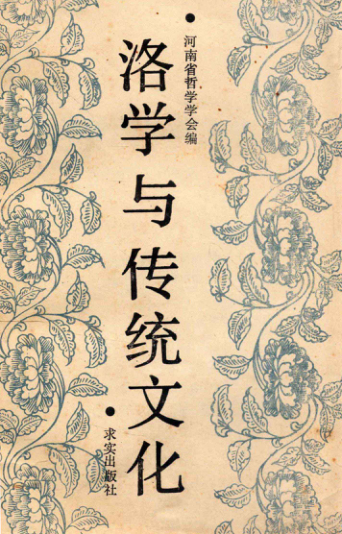 河南省哲学学会编
洛学与传统文化
求实出版社